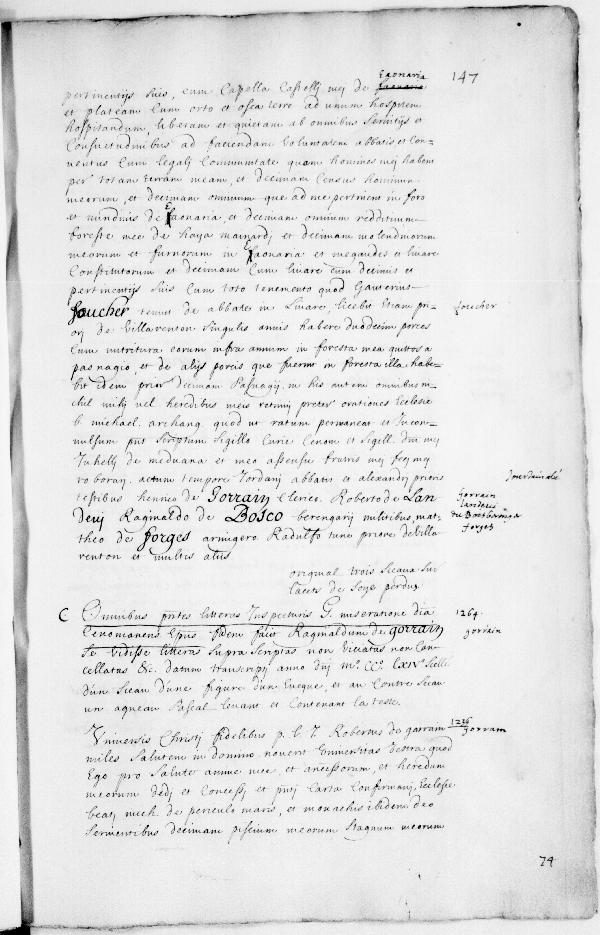 147
Eaonaria
pertinentijs suis, cum Capella Castelli mei de faonaria
et plateam Cum orto et osca terre ad unum hospitem
hospitandum, liberam et quietam ab omnibus servitijs et
Consuetudinibus ad faciendam Voluntatem abbatis et Con=
ventus Cum legali Communitate quam homines mei habent
per totam terram meam, et decimam Census hominum
meorum, et decimam omnium que ad me pertinent in foro
et nundinis de Eaonaria, et decimam omnium reddituum
foreste mee de haya mainardj et decimam molendinorum
meorum et furnorum in Eaonaria et megaudes et livare
Constitutorum et decimam Cum livare cum decimis et
pertinentijs suis Cum toto tenemento quod Gauterius
foucher tenuit de abbate in Livare, licebit etiam pri= foucher
orj de Villaventon singulis annis habere duodecim porcos
Cum nutritura eorum infra annum in foresta mea quittos a
pasnagio, et de alijs porcis que fuerint in foresta illa habe=
bit idem prior decimam Pasnagij, in his autem omnibus ni=
chil mihi vel heredibus meis retinui preter orationes Ecclesie
b. michael. archang. quod ut ratum permaneat et Incon=
vulsum pnt scriptum sigillo Curie Cenom et sigill. dni mei
Juhelli de meduana et meo assensu fratris mei feci
roborarj. actum tempore Jordanj abbatis et alexandrj prioris Jourdain abé
testibus henrico de Gorrain Clerico. Roberto de Lan gorrain
derij Raginaldo de Bosco berengarij militibus, mat= landeris du Bosc berenger
theo de forges armigero Radulfo tunc priore de Villa forges
venton et multis alijs
original trois sceaux sur
lacets de soye perdus
C Omnibus pntes litteras Inspecturis G. miseratione dia 1264
Cenomanens Epus fidem facit Raginaldum de gorrain gorrain
se vidisse litteras supra scriptas non viciatas non Can=
cellatas &c. datum transcriptj anno dnj m°. CC°. LXIV° Scellé
d'un sceau d'une figure d'un Eveque, et au Contre sceau
un agneau Pascal levant et Contenant la teste.
Universis Christj fidelibus p. l. J. Robertus de garram 1226 gorram
miles salutem in domino noverit Universitas Vestra quod
Ego pro salute anime mee, et ancessorum, et heredum
meorum dedj et Concessj et pntj Carta Confirmavj Ecclesie
beatj mich. de periculo maris, et monachis ibidem deo
servientibus decimam piscium meorum stagnum meorum
74